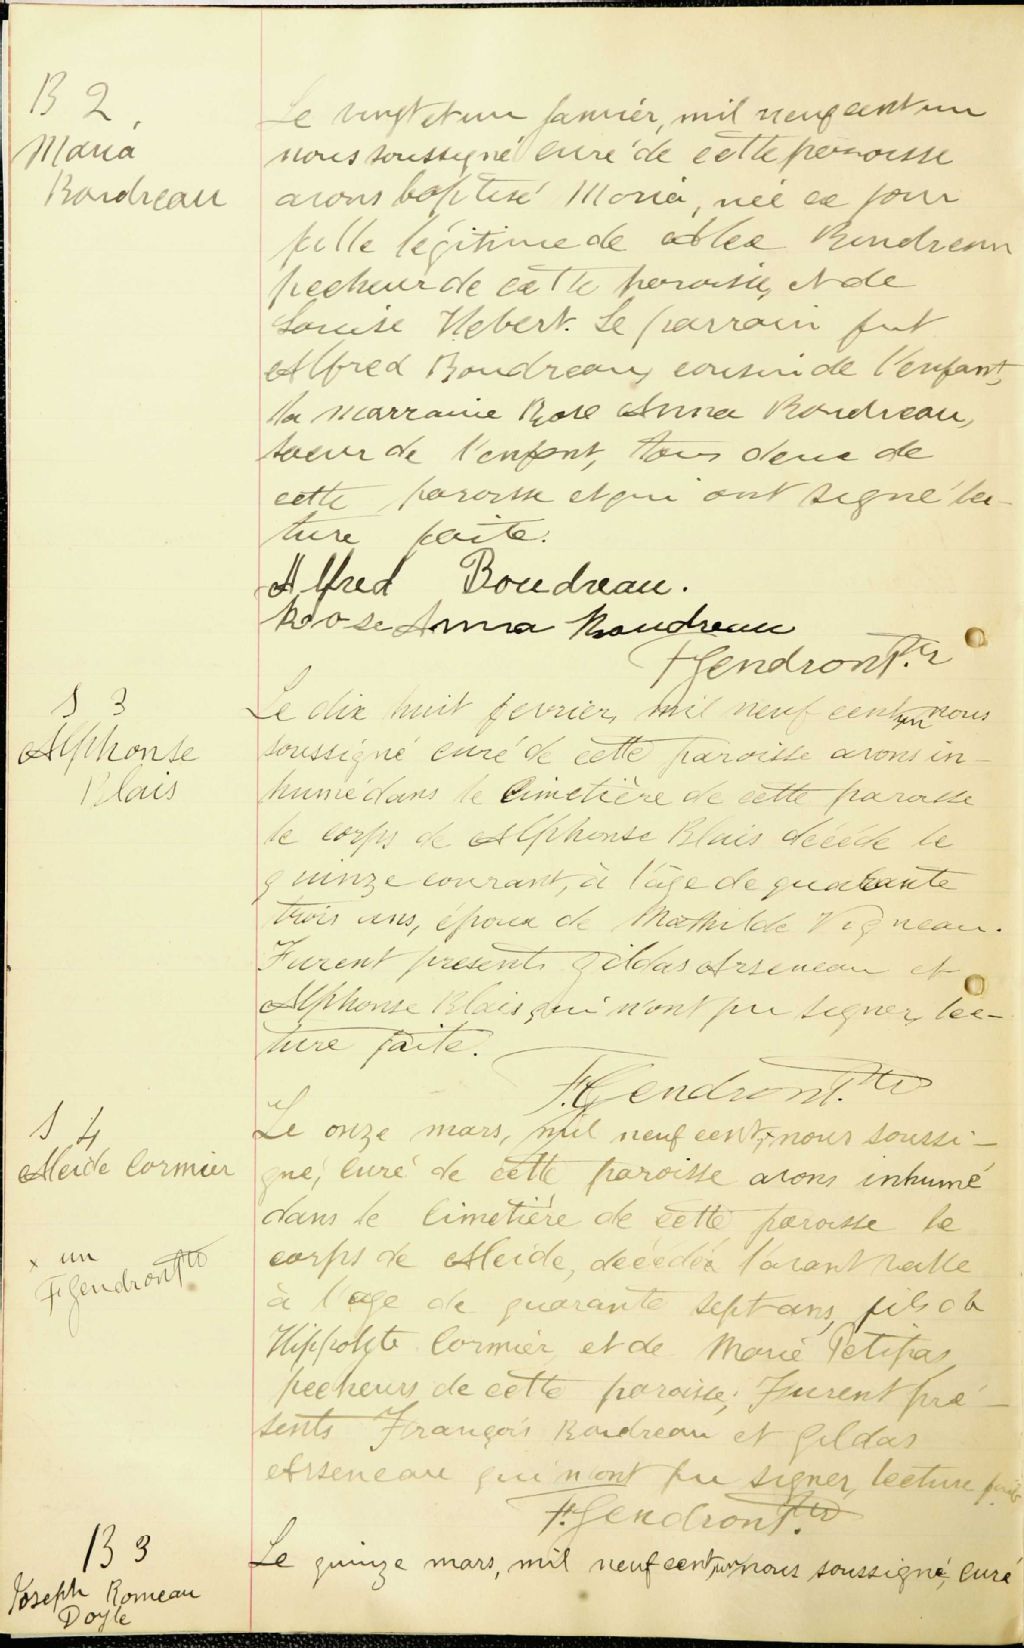 B 2
Maria
Boudreau
Le vingt et un janvier, mil neuf cent un
nous soussigné curé de cette paroisse
avons baptisé Maria, née ce jour
fille légitime de Boudreau
pecheur de cette paroisse, et de
Louise Hebert. Le parrain fut
Alfred Boudreau, cousin de l'enfant,
la marraine Rose Anna Boudreau,
soeur de l'enfant, tous deux de
cette paroisse et qui ont signé lec-
ture faite.
Alfred Boudreau.
Roose Anna Boudreau
F Gendron Ptr
S 3
Alphonse
Blais
Le dix huit fevrier, mil neuf cent un nous
soussigné curé de cette paroisse avons in-
humé dans le Cimetière de cette paroisse
le corps de Alphonse Blais décédé le
quinze courant, à l'âge de quarante
trois ans, époux de Mathilde Vigneau.
Furent presents Gildas Arseneau et
Alphonse Blais qui n'ont pu signer, lec-
ture faite.
F. Gendron Ptr
S 4
Aleide Cormier
Le onze mars, mil neuf cent x nous soussi-
gné, Curé de cette paroisse avons inhumé
dans le Cimetière de cette paroisse le
corps de Aleide, décédé l'avant veille
à l'age de quarante sept ans, fils de
Hippolyte Cormier, et de Marie Petipas,
pecheurs de cette paroisse; Furent pré-
sents François Boudreau et Gildas
Arseneau qui n'ont pu signer, lecture faite
F. Gendron Ptr
x un
F Gendron Ptr
B 3
Joseph Romeau
Doyle
Le quinze mars, mil neuf cent un, nous soussigné, curé